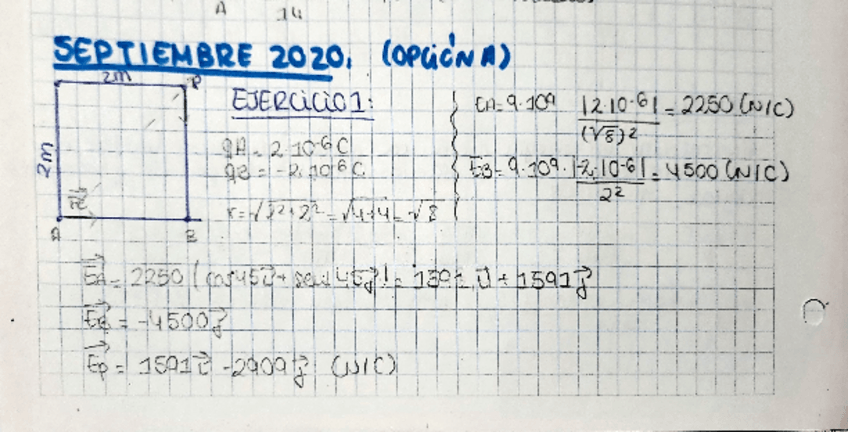 A 14
SEPTIEMBRE 2020. (OPCIÓN A)
2m P
EJERCICIO 1:
2m
qA = 2·10-6 C
qB = -2·10-6 C
r = √2²+2² = √4+4 = √8
A B
EA = 9·109 |2·10-6| / (√8)2 = 2250 (N/C)
EB = 9·109 · |-2·10-6| / 2² = 4500 (N/C)
EA = 2250 (cos45i + sen45j) = 1591i + 1591j
EB = -4500j
Ep = 1591i - 2909j (N/C)